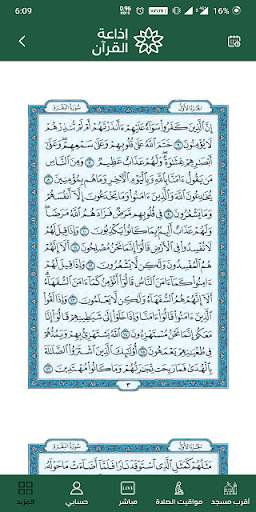 6:09
0.96
KB/S
16%
إذاعة
القرآن
سُورَةُ البَقَرَةِ
الجُزْءُ الأَوَّلُ
إِنَّ ٱلَّذِينَ كَفَرُوا۟ سَوَآءٌ عَلَيْهِمْ ءَأَنذَرْتَهُمْ أَمْ لَمْ تُنذِرْهُمْ
لَا يُؤْمِنُونَ ٦ خَتَمَ ٱللَّهُ عَلَىٰ قُلُوبِهِمْ وَعَلَىٰ سَمْعِهِمْ وَعَلَىٰٓ
أَبْصَٰرِهِمْ غِشَٰوَةٌ وَلَهُمْ عَذَابٌ عَظِيمٌ ٧ وَمِنَ ٱلنَّاسِ
مَن يَقُولُ ءَامَنَّا بِٱللَّهِ وَبِٱلْيَوْمِ ٱلْـَٔاخِرِ وَمَا هُم بِمُؤْمِنِينَ ٨
يُخَٰدِعُونَ ٱللَّهَ وَٱلَّذِينَ ءَامَنُوا۟ وَمَا يَخْدَعُونَ إِلَّآ أَنفُسَهُمْ
وَمَا يَشْعُرُونَ ٩ فِى قُلُوبِهِم مَّرَضٌ فَزَادَهُمُ ٱللَّهُ مَرَضًا
وَلَهُمْ عَذَابٌ أَلِيمٌۢ بِمَا كَانُوا۟ يَكْذِبُونَ ١٠ وَإِذَا قِيلَ لَهُمْ
لَا تُفْسِدُوا۟ فِى ٱلْأَرْضِ قَالُوٓا۟ إِنَّمَا نَحْنُ مُصْلِحُونَ ١١ أَلَآ إِنَّهُمْ
هُمُ ٱلْمُفْسِدُونَ وَلَٰكِن لَّا يَشْعُرُونَ ١٢ وَإِذَا قِيلَ لَهُمْ
ءَامِنُوا۟ كَمَآ ءَامَنَ ٱلنَّاسُ قَالُوٓا۟ أَنُؤْمِنُ كَمَآ ءَامَنَ ٱلسُّفَهَآءُ
أَلَآ إِنَّهُمْ هُمُ ٱلسُّفَهَآءُ وَلَٰكِن لَّا يَعْلَمُونَ ١٣ وَإِذَا لَقُوا۟
ٱلَّذِينَ ءَامَنُوا۟ قَالُوٓا۟ ءَامَنَّا وَإِذَا خَلَوْا۟ إِلَىٰ شَيَٰطِينِهِمْ قَالُوٓا۟ إِنَّا
مَعَكُمْ إِنَّمَا نَحْنُ مُسْتَهْزِءُونَ ١٤ ٱللَّهُ يَسْتَهْزِئُ بِهِمْ وَيَمُدُّهُمْ
فِى طُغْيَٰنِهِمْ يَعْمَهُونَ ١٥ أُو۟لَٰٓئِكَ ٱلَّذِينَ ٱشْتَرَوُا۟ ٱلضَّلَٰلَةَ
بِٱلْهُدَىٰ فَمَا رَبِحَت تِّجَٰرَتُهُمْ وَمَا كَانُوا۟ مُهْتَدِينَ ١٦
٣
سُورَةُ البَقَرَةِ
الجُزْءُ الأَوَّلُ
مَثَلُهُمْ كَمَثَلِ ٱلَّذِى ٱسْتَوْقَدَ نَارًا فَلَمَّآ أَضَآءَتْ مَا حَوْلَهُۥ
LIVE
أقرب مسجد
مواقيت الصلاة
مباشر
حسابي
المزيد